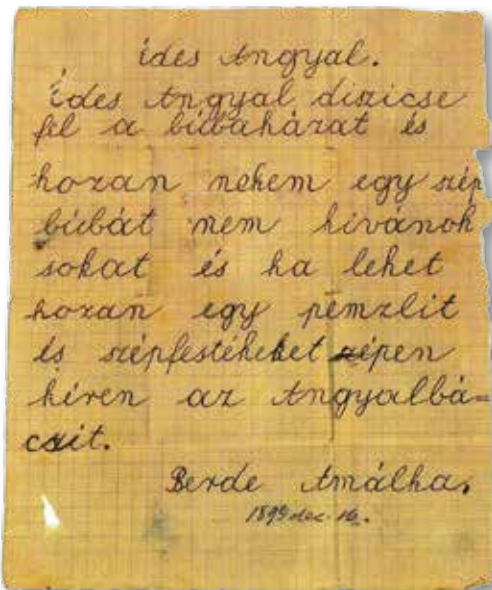 ides Angyal.
ides Angyal diszicse
fel a búbaházat és
hozan nekem egy szép
búbát nem kivánok
sokat és ha lehet
hozan egy pemzlit
és szépfestékeket szépen
kéren az Angyalbá=
csit.
Berde Amálka.
1899 dec. 16.